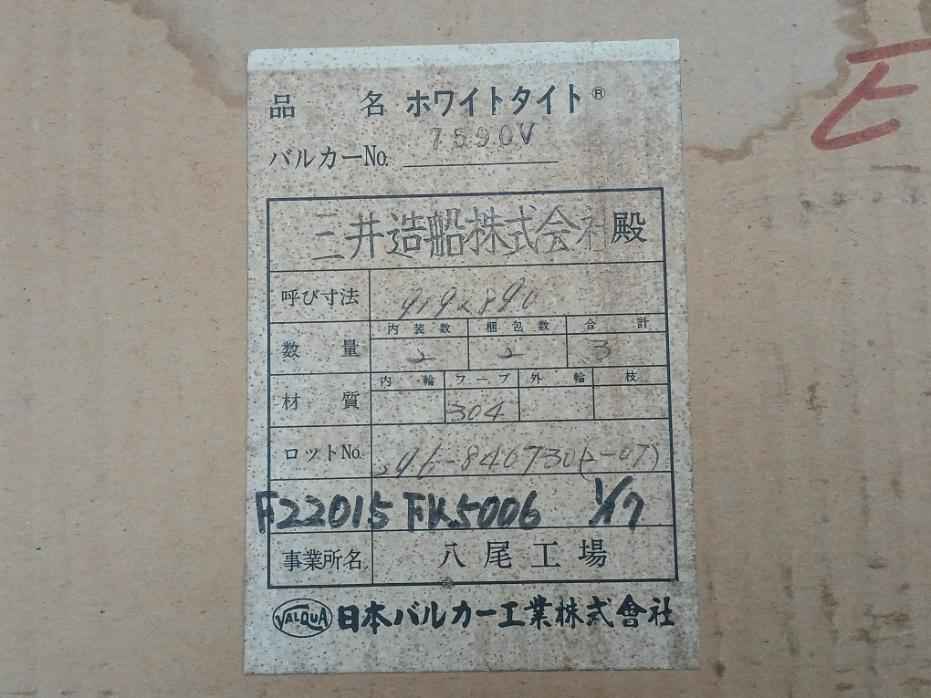 品 名 ホワイトタイト®
バルカーNo. 7590V
三井造船株式会社殿
呼び寸法 919×890
数 量 内装数 梱包数 合 計
2 2 3
材 質 内 輪 フープ 外 輪 枝
304
ロットNo.
F22015 FK5006 1/17
事業所名 八尾工場
VALQUA 日本バルカー工業株式會社